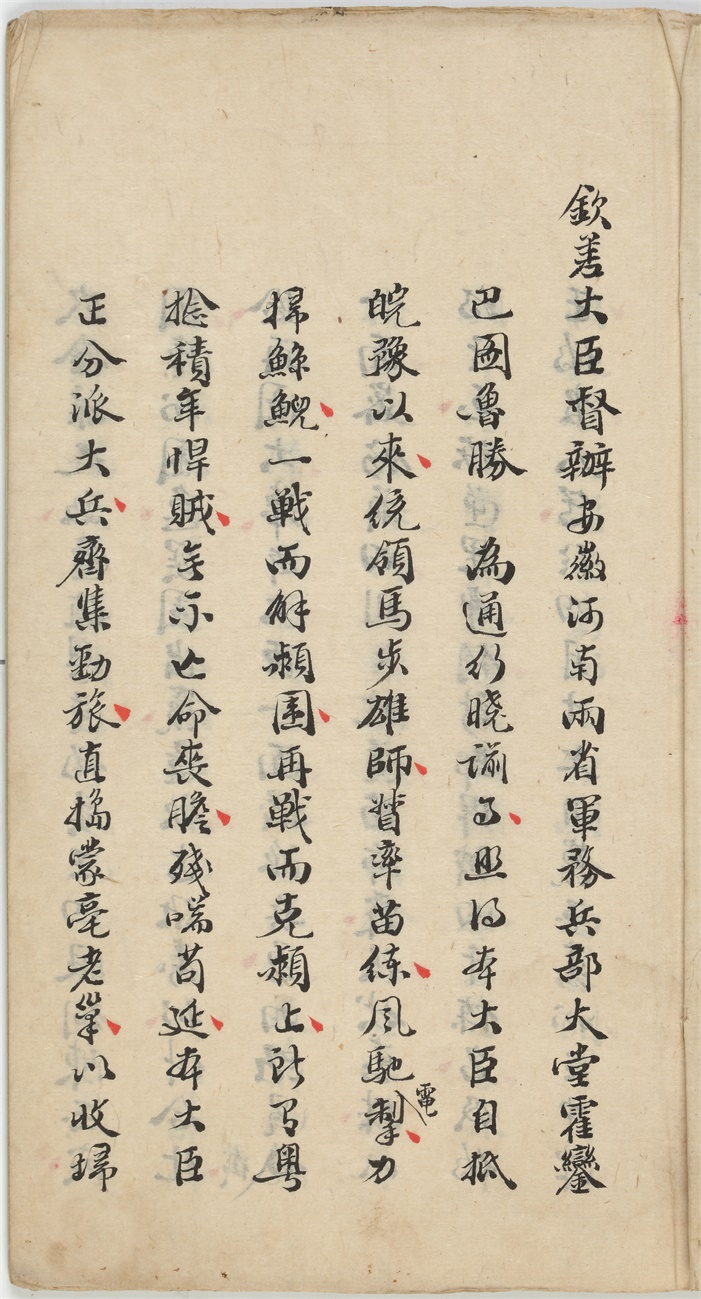 欽差大臣督辦安徽河南兩省軍務兵部大堂霍鑾
巴圖魯勝　為通行曉諭事照得本大臣自抵
皖豫以來統領馬步雄師督率苗練風馳電掣力
掃鯨鯢一戰而解潁圍再戰而克潁上所有粵
捻積年悍賊無不亡命喪膽殘喘苟延本大臣
正分派大兵齊集勁旅直搗蒙亳老巢以收掃